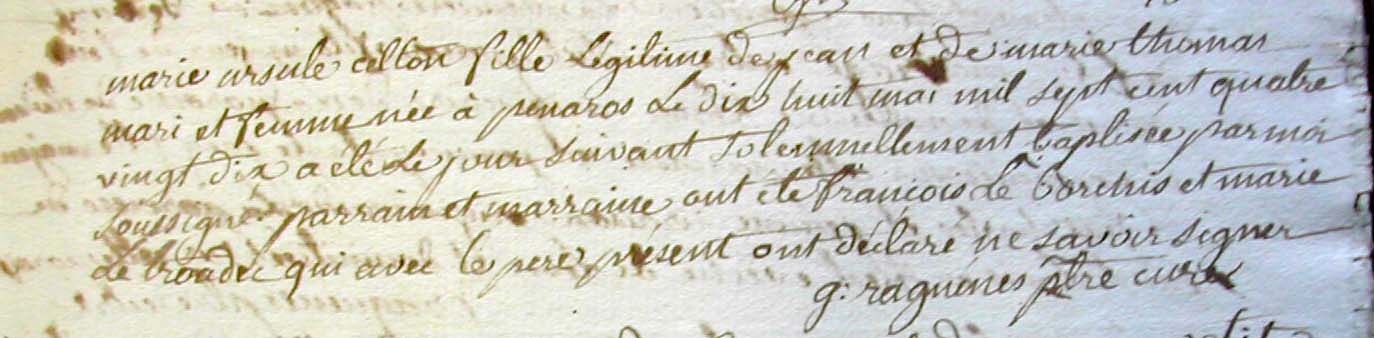 marie ursule celton fille légitime de jean et de marie thomas
mari et femme née à penaros le dix huit mai mil sept cent quatre
vingt dix a été le jour suivant solemnellement baptisée par moi
soussigné parrain et marraine ont été françois le borchis et marie
le broadec qui avec le pere présent ont déclaré ne savoir signer
g: raguénes ptre curé